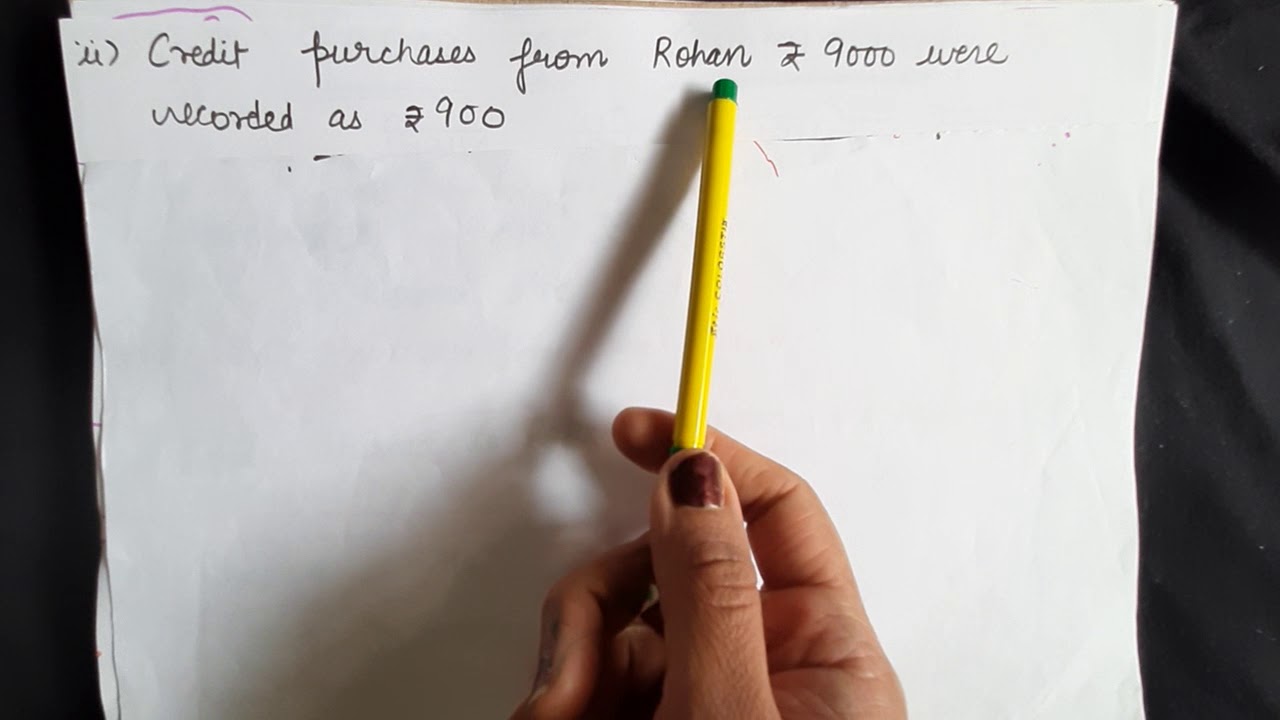 ii) Credit purchases from Rohan ₹ 9000 were
recorded as ₹ 900